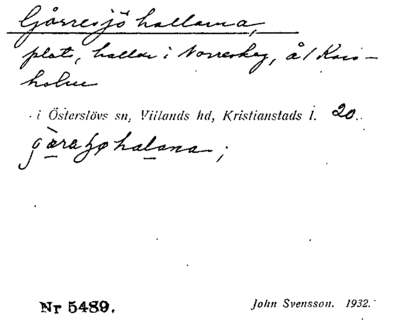 Gårresjöhallarna,
plats, hallar i Norreskog, å/ Kars-
holm
i Österslövs sn, Villands hd, Kristianstads l. 20.
gæraʃøhalana;
Nr 5489.
John Svensson. 1932.